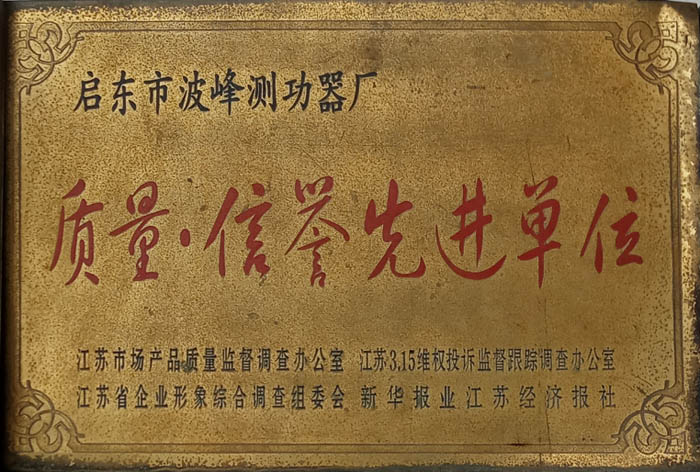 启东市波峰测功器厂
质量·信誉先进单位
江苏市场产品质量监督调查办公室 江苏3.15维权投诉监督跟踪调查办公室
江苏省企业形象综合调查组委会 新华报业江苏经济报社